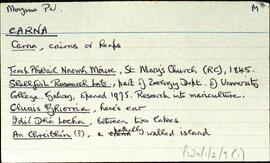 M
CARNA
Carna, cairns or heaps
Teach Phobail Naomh Máire, St Mary's Church (RC), 1845.
Shellfish Research Lab., part of Zoology Dept. of University
College, Galway, opened 1975. Research into mariculture.
Cluais Ghiorria, hare's ear
Idil Dhá Locha, between two lakes
An Chraibhín (?), a walled island
P120/1/2/9 (1)